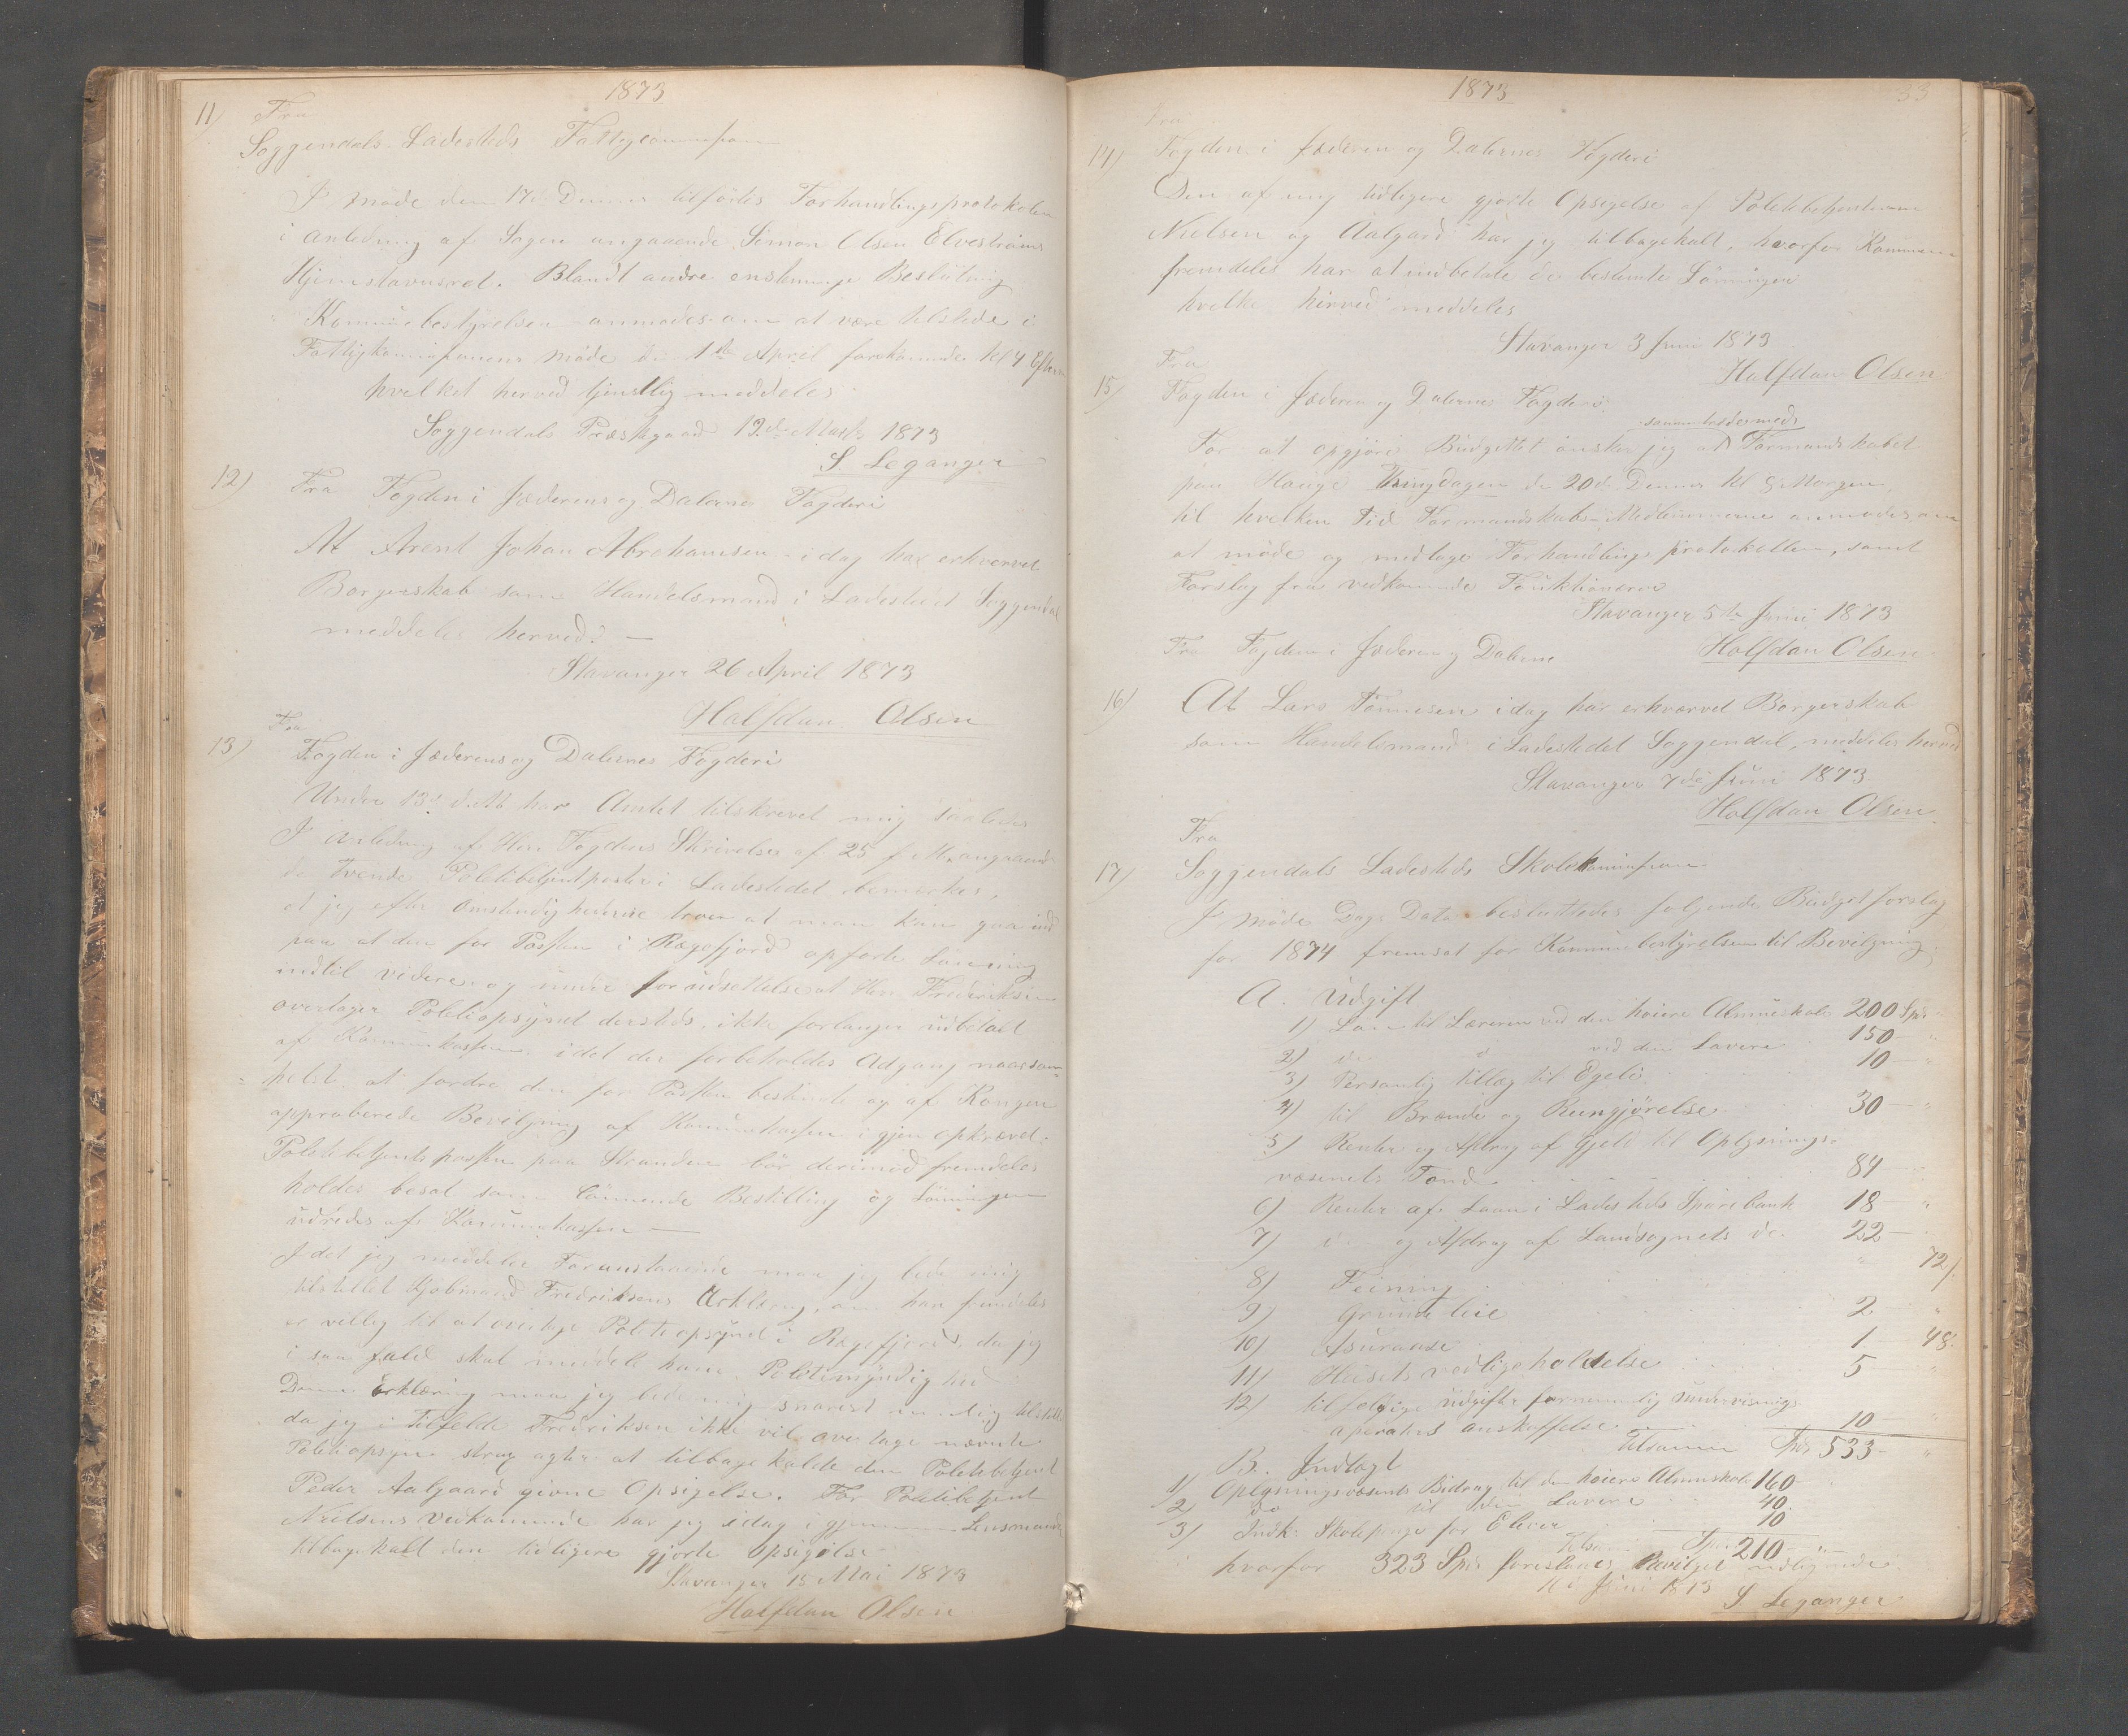 1873
11) Fra
Soggendals Ladesteds Fattigcommission
I møde den 17de Dennes tilførtes Forhandlingsprotokolen
i Anledning af Sagen angaaende Simon Olsen Elvestrøms
Hjemstavnsret. Blandt andre enstemmige Beslutning
Kommunebestyrelsen anmodes om at være tilstede i
Fattigkommissionens møde den 1ste April forekommende Kl 4 Efterm
hvilket herved tjenstlig meddeles
Soggendals Præstegaard 19de Marts 1873
S. Leganger
12) Fra Fogden i Jæderens og Dalernes Fogderi
At Arent Johan Abrahamsen idag har erhvervet
Borgerskab som Handelsmand i Ladestedet Soggendal
meddeles herved. —
Stavanger 26 April 1873
Halfdan Olsen
Fra
13) Fogden i Jæderens og Dalernes Fogderi
Under 13de ds har Amtet tilskrevet mig saaledes
I Anledning af Herr Fogdens Skrivelse af 25 f. M. angaaende
de tvende Politibetjentposter i Ladestedet bemærkes,
at jeg efter Omstendighederne troer at man kan gaa ind
paa at den for Posten i Rægefjord opførte Lønning
indtil videre og under forudsettelse at Herr Fredriksen
overtager Politiopsynet dersteds, ikke forlanges udbetalt
af Kommunekassen, idet der forbeholdes Adgang naarsom
helst at fordre den for Posten bestemte og af Kongen
approberede Bevilgning af Kommunekassen igjen opkrævet.
Politibetjentposten paa Stranden bør derimod fremdeles
holdes besat som lønnende Bestilling og Lønningen
udredes af Kommunekassen —
Idet jeg meddeler Foranstaaende maa jeg bede mig
tilstillet Kjøbmand Fredriksens Erklæring, om han fremdeles
er villig til at overtage Politiopsynet i Rægefjord, da jeg
i saa fald skal meddele ham Politimyndighed
Denne Erklæring maa jeg bede mig snarest muligt tilstillet
da jeg i Tilfelde Fredriksen ikke vil overtage nævnte
Politiopsyn strax agter at tilbagekalde den Politibetjent
Peder Aalgaard givne Opsigelse. For Politibetjent
Nielsens Vedkommende har jeg idag igjennem Lensmanden
tilbagekaldt den tidligere gjorte Opsigelse
Stavanger 15 Mai 1873
Halfdan Olsen
1873
33
Fra
14) Fogden i Jæderen og Dalernes Fogderi
Den af mig tidligere gjorte Opsigelse af Politibetjenterne
Nielsen og Aalgard har jeg tilbagekalt, hvorfor Kommunen
fremdeles har at indbetale de bestemte Lønninger
hvilke herved meddeles
Stavanger 3 Juni 1873
Halfdan Olsen
Fra
15) Fogden i Jæderen og Dalernes Fogderi
sammentrædermeds
For at opgjøre Budgettet ønsker jeg at Formandskabet
paa Hauge Thingdagen den 20de Dennes Kl 8 Morgen
til hvilken Tid Formandskabs-Medlemmerne anmodes om
at møde og medtage Forhandlingsprotokollen, samt
Forslag fra vedkommende Funktionærer
Stavanger 5te Juni 1873
Halfdan Olsen
Fra Fogden i Jæderen og Dalerne
16) At Lars Tønnesen idag har erhvervet Borgerskab
som Handelsmand i Ladestedet Soggendal, meddeles herved
Stavanger 7de Juni 1873
Halfdan Olsen
Fra
17) Soggendals Ladesteds Skolekommission
I møde Dags Dato besluttedes følgende Budgetforslag
for 1874 fremsat for Kommunebestyrelsen til Bevilgning
A. Udgift
1) Løn til Læreren ved den høiere Almueskole 200 Spd "
2) do d ved den Lavere 150 — "
3) Personlig tillæg til Egeli 10 — "
4) til Brænde og Rengjørelse 30 — "
5) Renter og Afdrag af Gjeld til Oplysnings-
væsenets Fond 84 —
6) Renter af Laan i Ladesteds Sparebank 18 — "
7) do og Afdrag af Landsognets do 22 —
8) Feining " 72/
9) Grundleie 2 "
10) Asurance 1 — 48
11) Husets vedligeholdelse 5 "
12) tilfeldige udgifter fornemmelig undervisnings
aparaters anskaffelse 10 — "
Tilsammen Spd 533 — "
B. Indtægt
1) Oplysningsvæsenets Bidrag til den høiere Almueskole 160 —
2) do til den Lavere 40
3) Indk: Skolepenge for Elever 10
Tilsam: Spd 210 — "
hvorfor 323 Spd foreslaaes Bevilget udlignede
Juni 1873
S Leganger